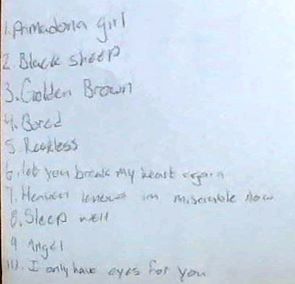 1. Primadona girl
2. Black sheep
3. Golden Brown
4. Bored
5. Reckless
6. let you break my heart again
7. Heaven knows im miserable now
8. Sleep well
9 Angel
10. I only have eyes for you